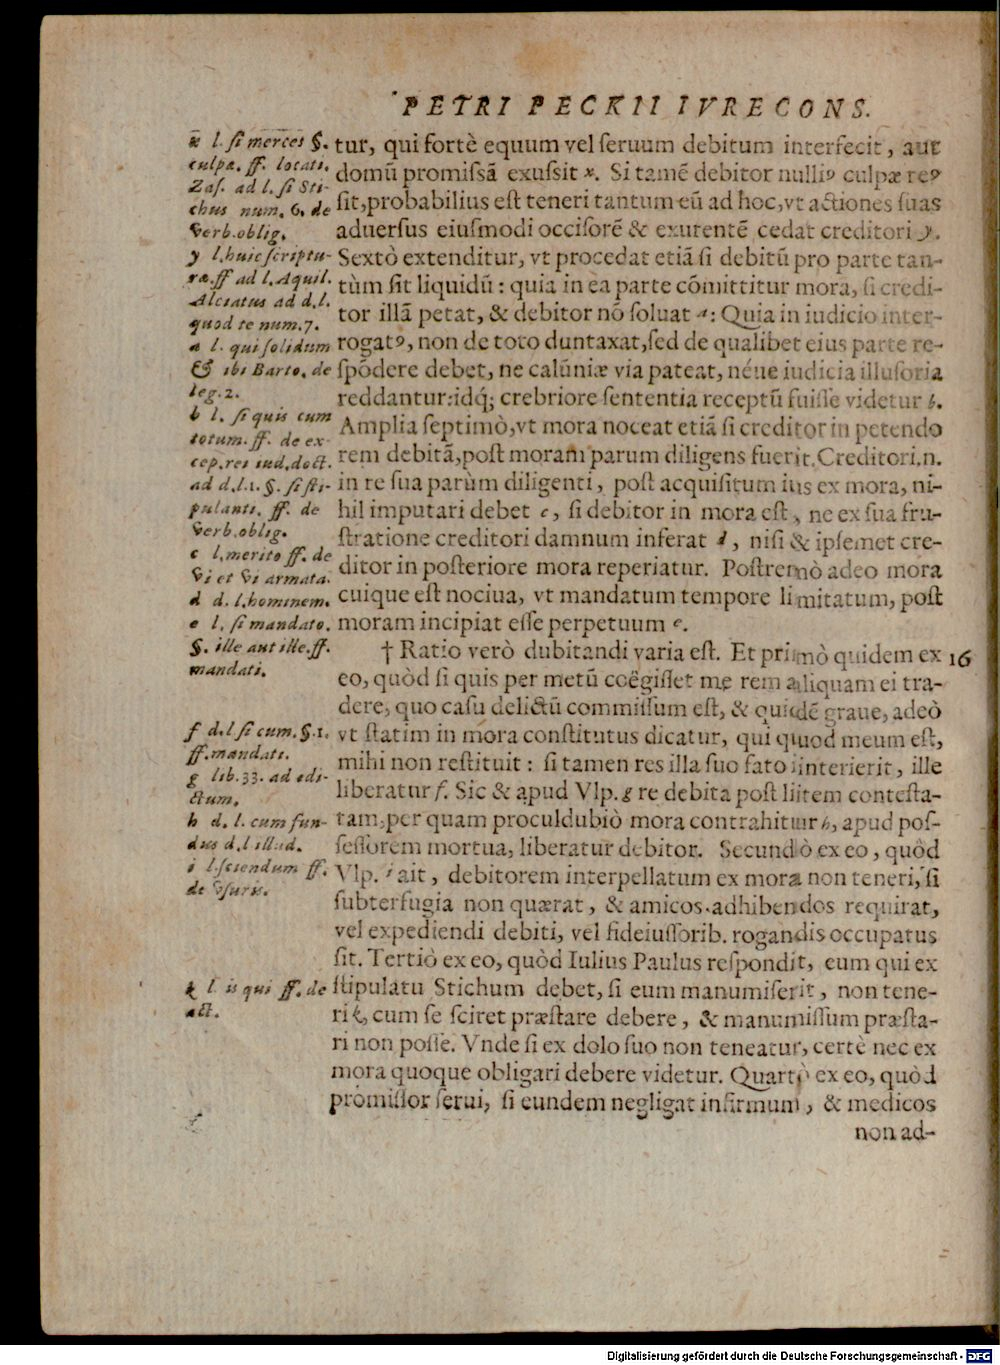 PETRI PECKII IVRECONS.
tur, qui fortè equum vel ſeruum debitum interfecit, aut
domũ promiſſã exuſsit x. Si tamẽ debitor nulliꝰ culpæ reꝰ
ſit, probabilius eſt teneri tantum eũ ad hoc, vt actiones ſuas
aduerſus eiuſmodi occiſorẽ & exurentẽ cedat creditori y.
Sextò extenditur, vt procedat etiã ſi debitũ pro parte tan-
tùm ſit liquidũ: quia in ea parte cõmittitur mora, ſi credi-
tor illã petat, & debitor nõ ſoluat a: Quia in iudicio inter-
rogatꝰ, non de toto duntaxat, ſed de qualibet eius parte re-
ſpõdere debet, ne calũniæ via pateat, néue iudicia illuſoria
reddantur: idq́; crebriore ſententia receptũ fuiſſe videtur b.
Amplia ſeptimò, vt mora noceat etiã ſi creditor in petendo
rem debitã, poſt moram parum diligens fuerit. Creditori.n.
in re ſua parùm diligenti, poſt acquiſitum ius ex mora, ni-
hil imputari debet c, ſi debitor in mora eſt, ne ex ſua fru-
ſtratione creditori damnum inferat d, niſi & ipſemet cre-
ditor in poſteriore mora reperiatur. Poſtremò adeo mora
cuique eſt nociua, vt mandatum tempore limitatum, poſt
moram incipiat eſſe perpetuum e.
† Ratio verò dubitandi varia eſt. Et primò quidem ex 16
eo, quòd ſi quis per metũ coëgiſſet me rem aliquam ei tra-
dere, quo caſu delictũ commiſſum eſt, & quidẽ graue, adeò
vt ſtatim in mora conſtitutus dicatur, qui quod meum eſt,
mihi non reſtituit: ſi tamen res illa ſuo fato interierit, ille
liberatur f. Sic & apud Vlp. g re debita poſt litem conteſta-
tam, per quam proculdubiò mora contrahitur h, apud poſ-
ſeſſorem mortua, liberatur debitor. Secundò ex eo, quòd
Vlp. i ait, debitorem interpellatum ex mora non teneri, ſi
ſubterfugia non quærat, & amicos adhibendos requirat,
vel expediendi debiti, vel fideiuſſorib. rogandis occupatus
ſit. Tertiò ex eo, quòd Iulius Paulus reſpondit, eum qui ex
ſtipulatu Stichum debet, ſi eum manumiſerit, non tene-
ri k, cum ſe ſciret præſtare debere, & manumiſſum præſta-
ri non poſſe. Vnde ſi ex dolo ſuo non teneatur, certè nec ex
mora quoque obligari debere videtur. Quartò ex eo, quòd
promiſſor ſerui, ſi eundem negligat infirmum, & medicos
non ad-
x l. ſi merces §.
culpæ. ff. locati.
Zaſ. ad l. ſi Sti-
chus num. 6. de
verb. oblig.
y l. huic ſcriptu-
ræ. ff ad l. Aquil.
Alciatus ad d. l.
quod te num. 7.
a l. qui ſolidum
& ibi Barto. de
leg. 2.
b l. ſi quis cum
totum. ff. de ex-
cep. rei iud. doct.
ad d. l. 1. §. ſi ſti-
pulanti. ff. de
verb. oblig.
c l. merito ff. de
vi et vi armata.
d d. l. hominem.
e l. ſi mandato.
§. ille aut ille. ff.
mandati.
f d. l ſi cum. §. 1.
ff. mandati.
g lib. 33. ad edi-
ctum.
h d. l. cum fun-
dus d. l illud.
i l. ſciendum ff.
de vſuris.
k l. is qui ff. de
act.
Digitalisierung gefördert durch die Deutsche Forschungsgemeinschaft - DFG